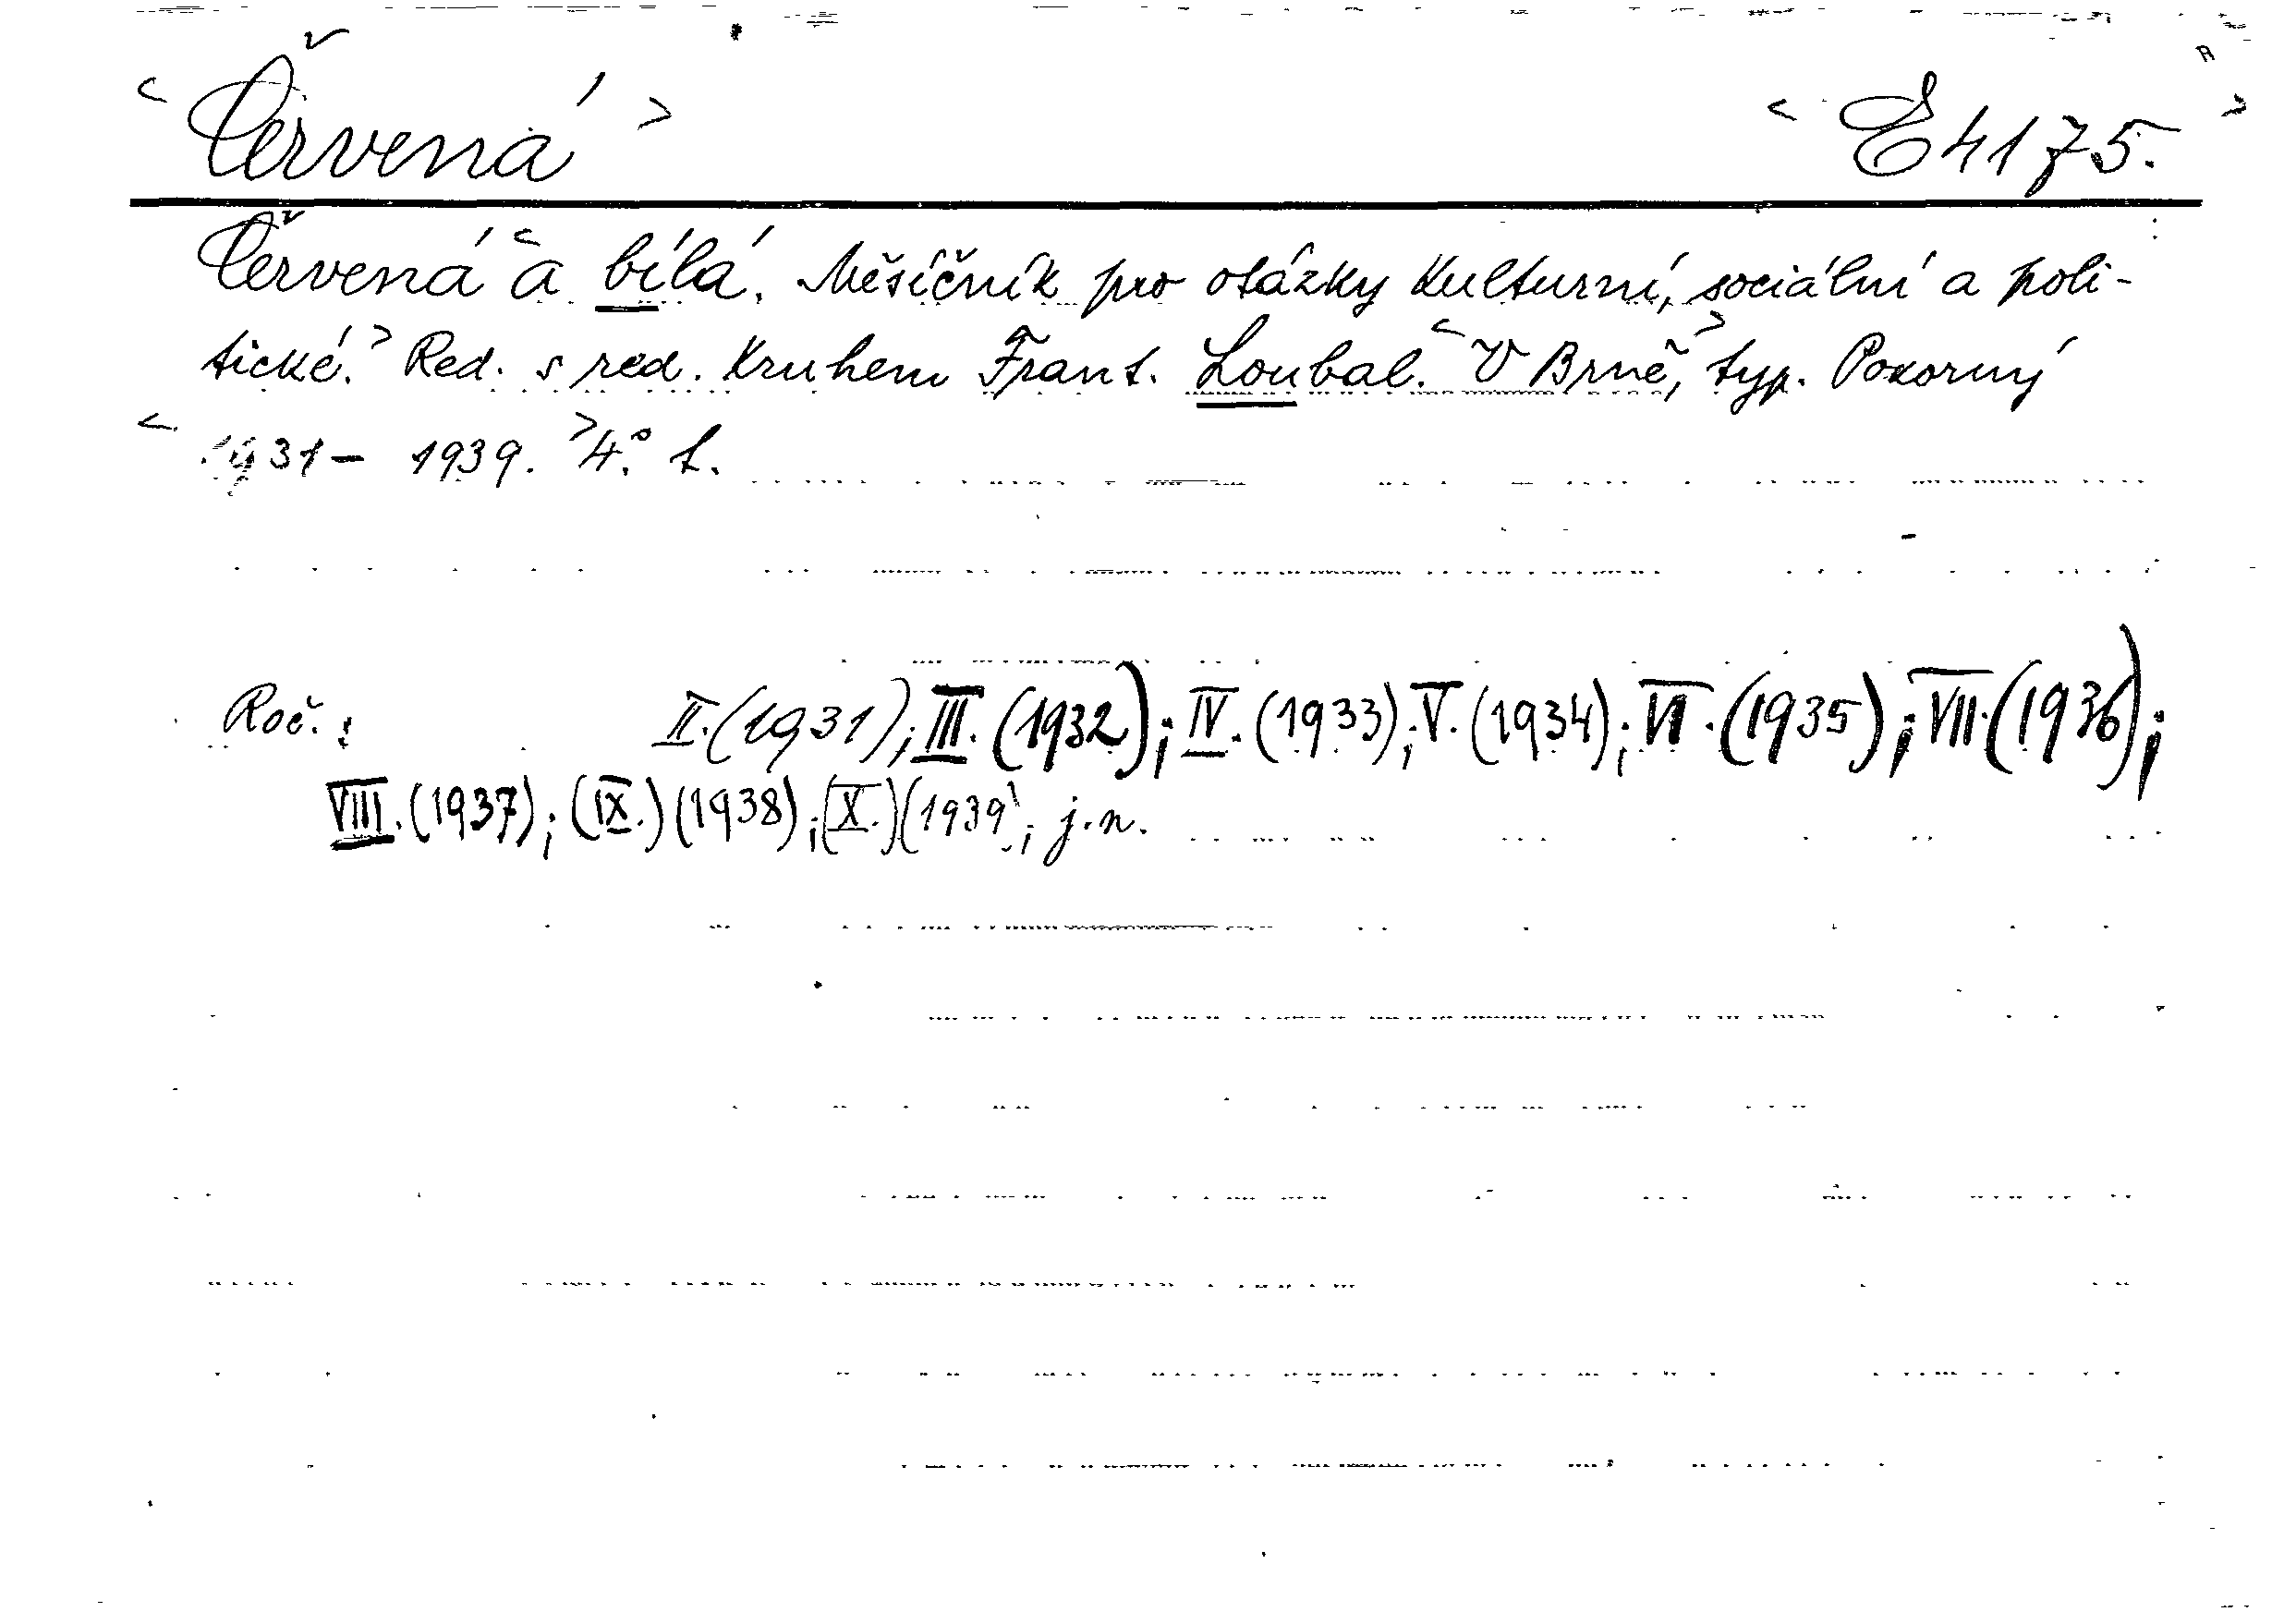 <Červená> <E 4175.>
Červená <a bílá. Měsíčník pro otázky kulturní, sociální a poli-
tické.> Red. s red. kruhem Frant. Loubal. <V Brně,> typ. Pokorný
<1931- 1939.> 4.° t.
Roč.: II. (1931); III. (1932); IV. (1933); V. (1934); VI. (1935); VII. (1936);
VIII. (1937); (IX.) (1938); (X.) (1939); j.n.